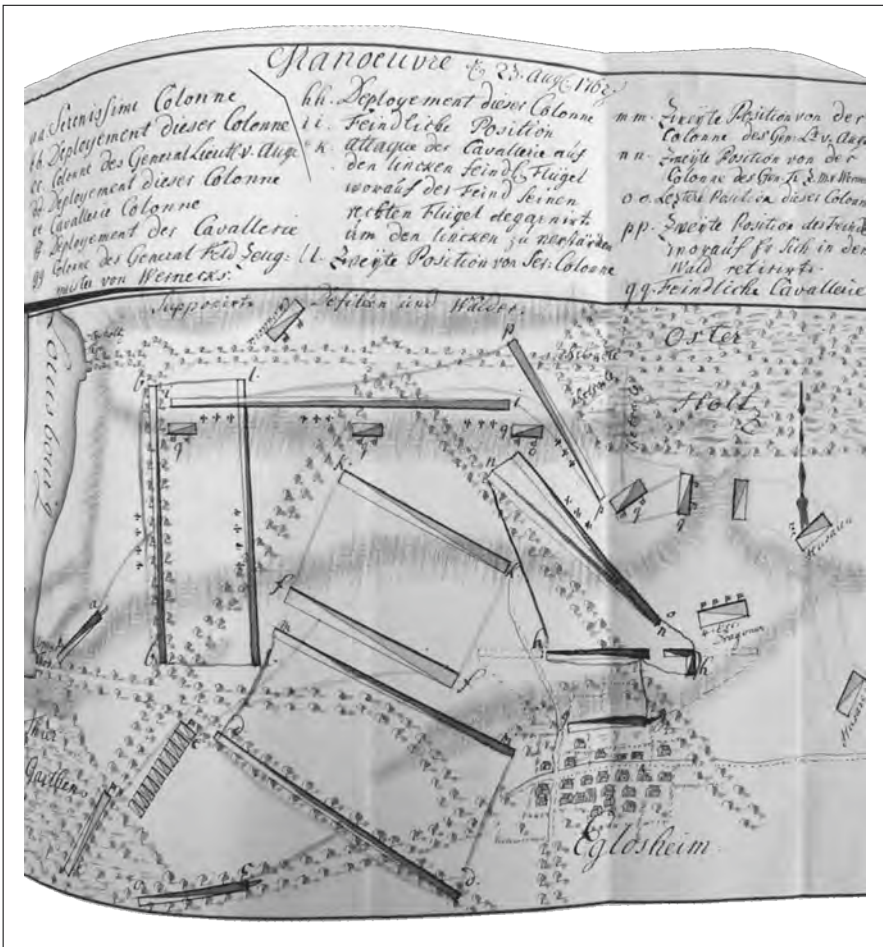 Manoeuvre
23. Aug
aa. Serenissime Colonne
bb. Deployement dieser Colonne
cc. Colonne des General Lieut. v. Auge
dd. Deployement dieser Colonne
ee. Cavallerie Colonne
ff. Deployement des Cavallerie
gg. Colonne des General Feld Zeug:
meister von Wernecks.
hh. Deployement dieser Colonne
ii. Feindliche Position
kk. attaque der Cavallerie auf
den lincken Feindl. Flügel
worauf der Feind seinen
rechten Flügel degarnirt
um den lincken zu verstärcken
ll. Zweyte Position von Ser: Colonne
mm. Zweyte Position von der
Colonne des Gen: Lt. v. Auge
nn. Zweyte Position von der
Colonne des Gen.
oo. Leztere Position dieser Colonn
pp. Zweyte Position des Feinds
worauf Er sich in den
Wald retirirt.
qq. Feindliche Cavallerie
Supponirte Defileen und Wälder.
Oster
Holtz
Louisbourg
Thier
Garthen
Husaren
Dragoner
Husaren
Eglosheim
a
b
l.
b
i
i
q
q
q
p
p
q
q
k.
k
f
f
m
n
n
o
h
h
g
d
d.
c
c
e